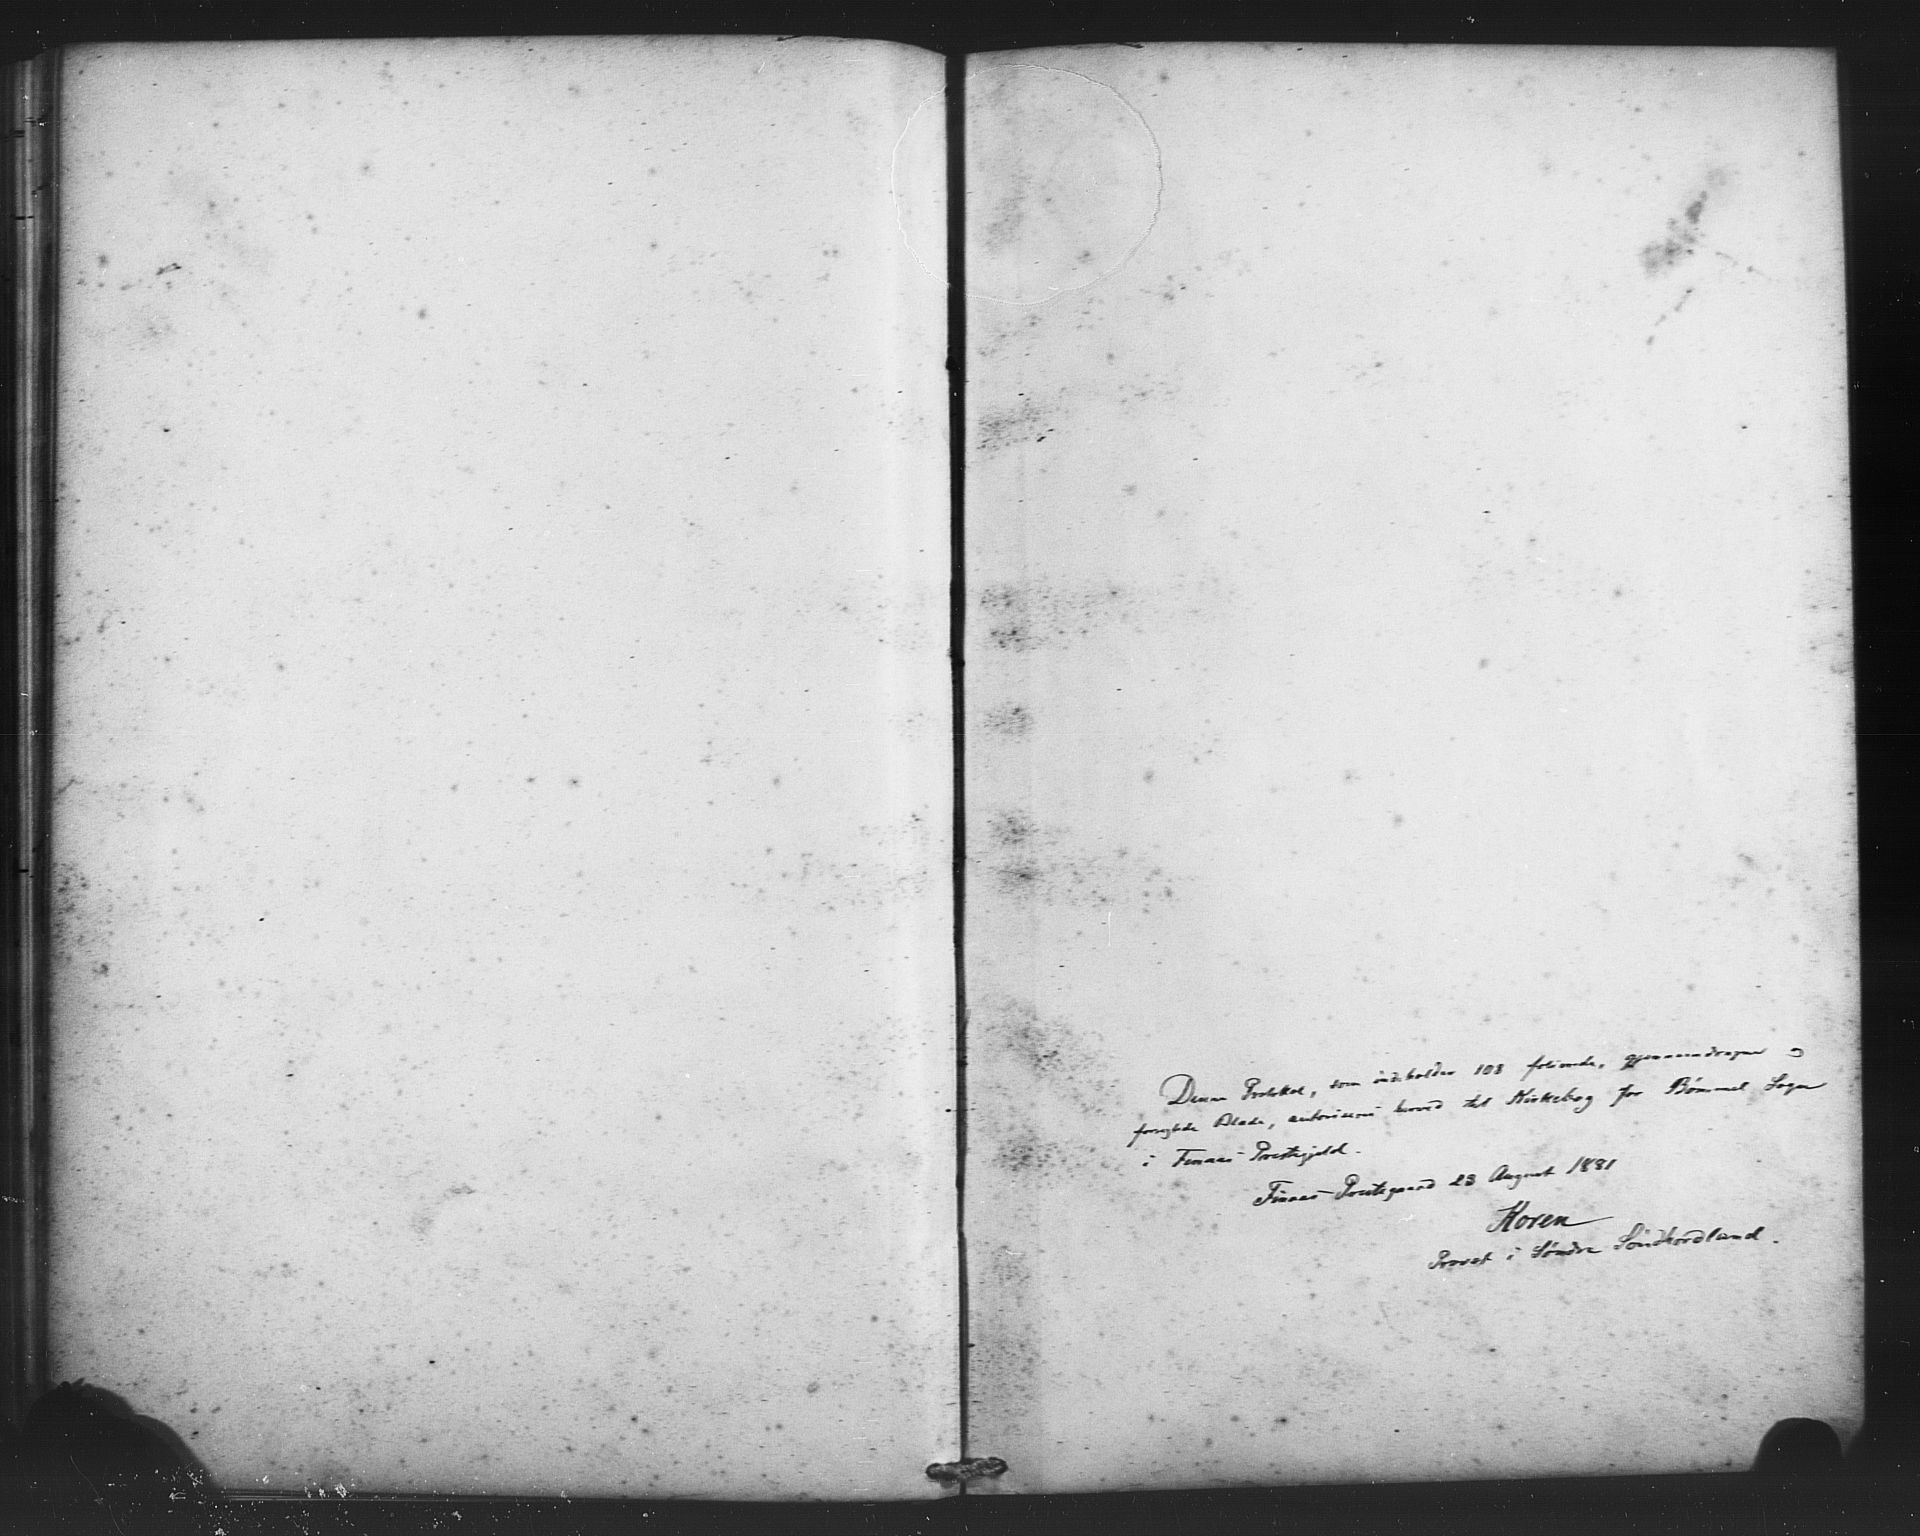 Denne Protokol, som indeholder 108 folierede, gjennemdragne og
forseglede Blade, autoriseres herved til Kirkebog for Bømmel Sogn
i Finnaas Prestegjeld.
Finnaas Prestegaard 23 August 1881
Koren
Provst i Søndre Søndhordland.